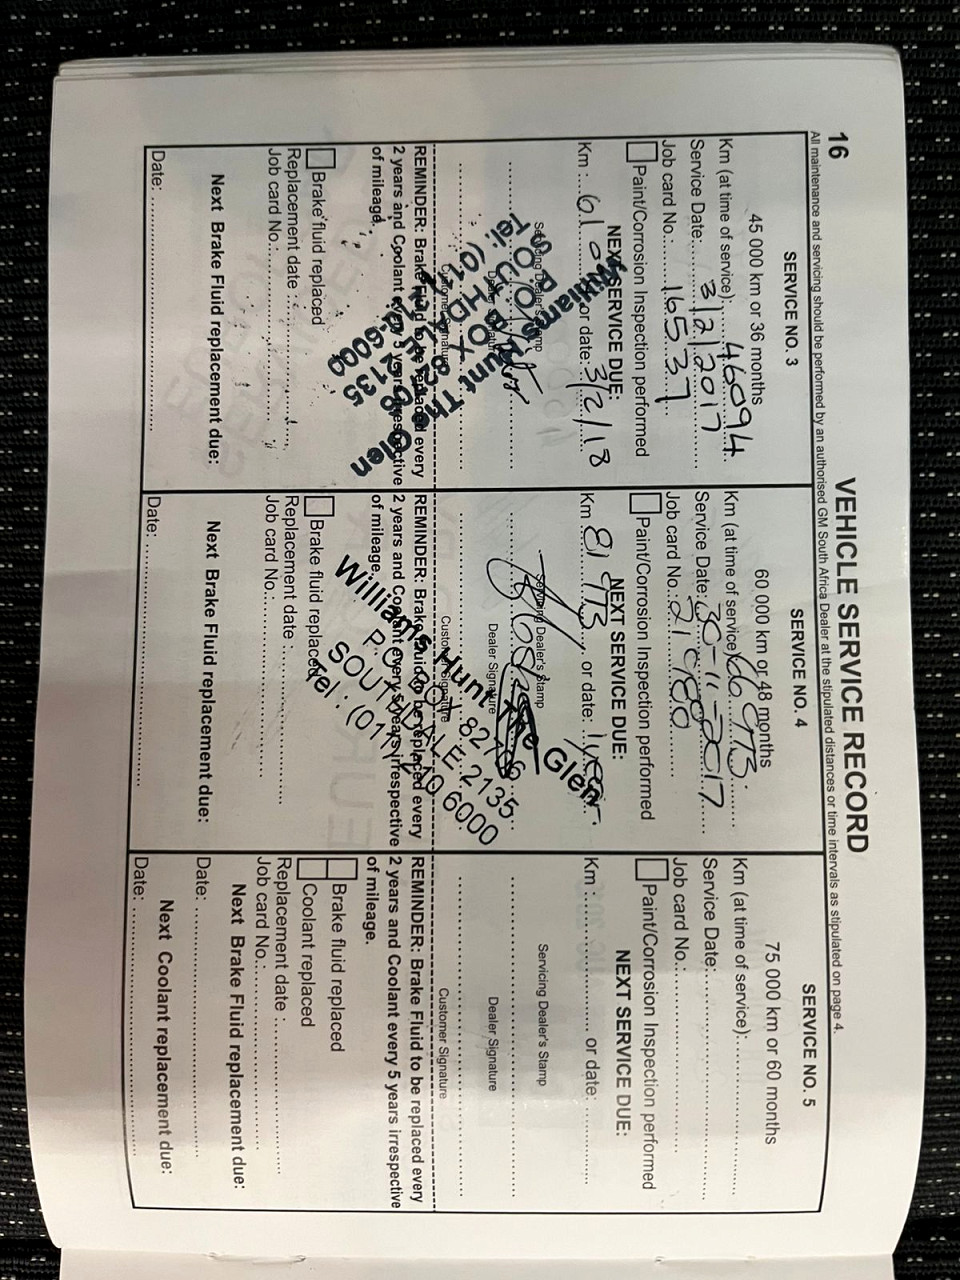 16
VEHICLE SERVICE RECORD
All maintenance and servicing should be performed by an authorised GM South Africa Dealer at the stipulated distances or time intervals as stipulated on page 4.
SERVICE NO. 3
45 000 km or 36 months
Km (at time of service): 46094
Service Date: 3/2/2017
Job card No.: 16537
Paint/Corrosion Inspection performed
NEXT SERVICE DUE:
Km : or date: 3/2/18
Servicing Dealer's Stamp
Dealer Signature
Customer Signature
Williams Hunt The Glen
P.O. BOX
2135
REMINDER: Brake Fluid to be replaced every
2 years and Coolant every 5 years irrespective
of mileage.
Brake fluid replaced
Replacement date :
Job card No.:
Next Brake Fluid replacement due:
Date:
SERVICE NO. 4
60 000 km or 48 months
Km (at time of service): 66973
Service Date: 30-11-2017
Job card No.: 21980
Paint/Corrosion Inspection performed
NEXT SERVICE DUE:
Km : 81973 or date: 1 year
Servicing Dealer's Stamp
Dealer Signature
Customer Signature
Williams Hunt The Glen
P.O. BOX
SOUTHDALE 2135
Tel : (011) 6000
REMINDER: Brake Fluid to be replaced every
2 years and Coolant every 5 years irrespective
of mileage.
Brake fluid replaced
Replacement date :
Job card No.:
Next Brake Fluid replacement due:
Date:
SERVICE NO. 5
75 000 km or 60 months
Km (at time of service):
Service Date:
Job card No.:
Paint/Corrosion Inspection performed
NEXT SERVICE DUE:
Km : or date:
Servicing Dealer's Stamp
Dealer Signature
Customer Signature
REMINDER: Brake Fluid to be replaced every
2 years and Coolant every 5 years irrespective
of mileage.
Brake fluid replaced
Coolant replaced
Replacement date :
Job card No.:
Next Brake Fluid replacement due:
Date:
Next Coolant replacement due:
Date: